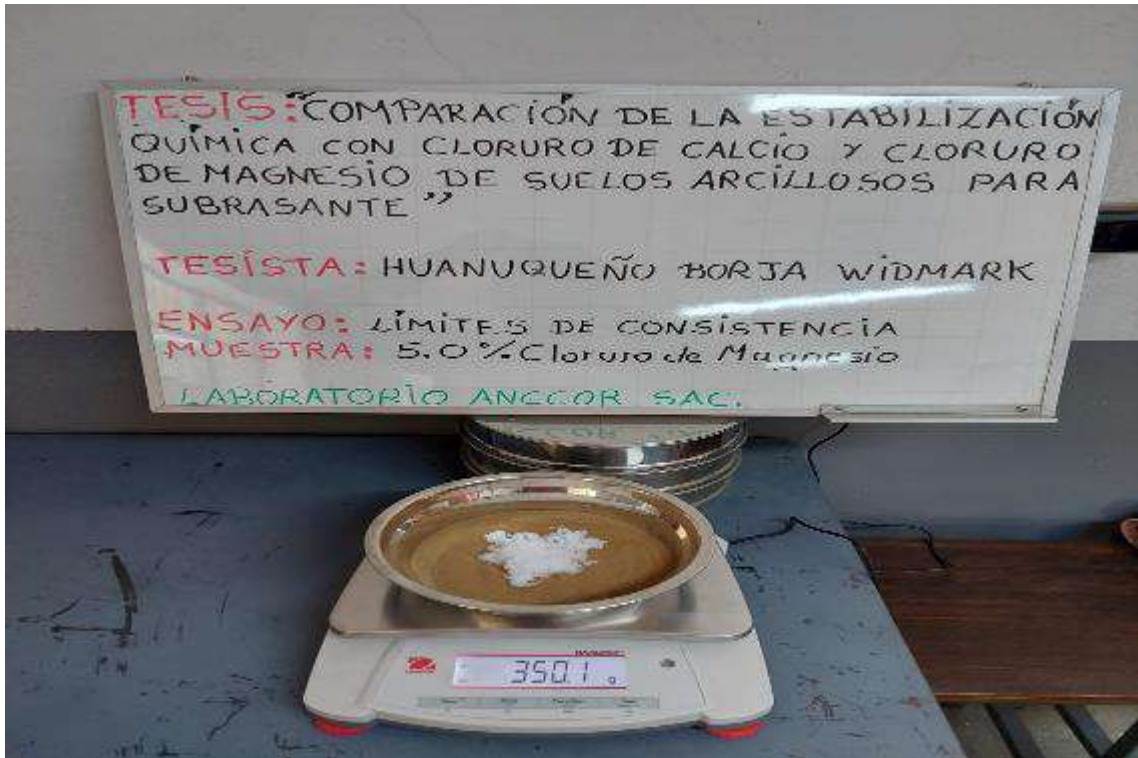 TESIS: "COMPARACIÓN DE LA ESTABILIZACIÓN
QUÍMICA CON CLORURO DE CALCIO Y CLORURO
DE MAGNESIO DE SUELOS ARCILLOSOS PARA
SUBRASANTE"
TESISTA: HUANUQUEÑO BORJA WIDMARK
ENSAYO: LÍMITES DE CONSISTENCIA
MUESTRA: 5.0% Cloruro de Magnesio
LABORATORIO ANCCOR SAC.
350.1 g